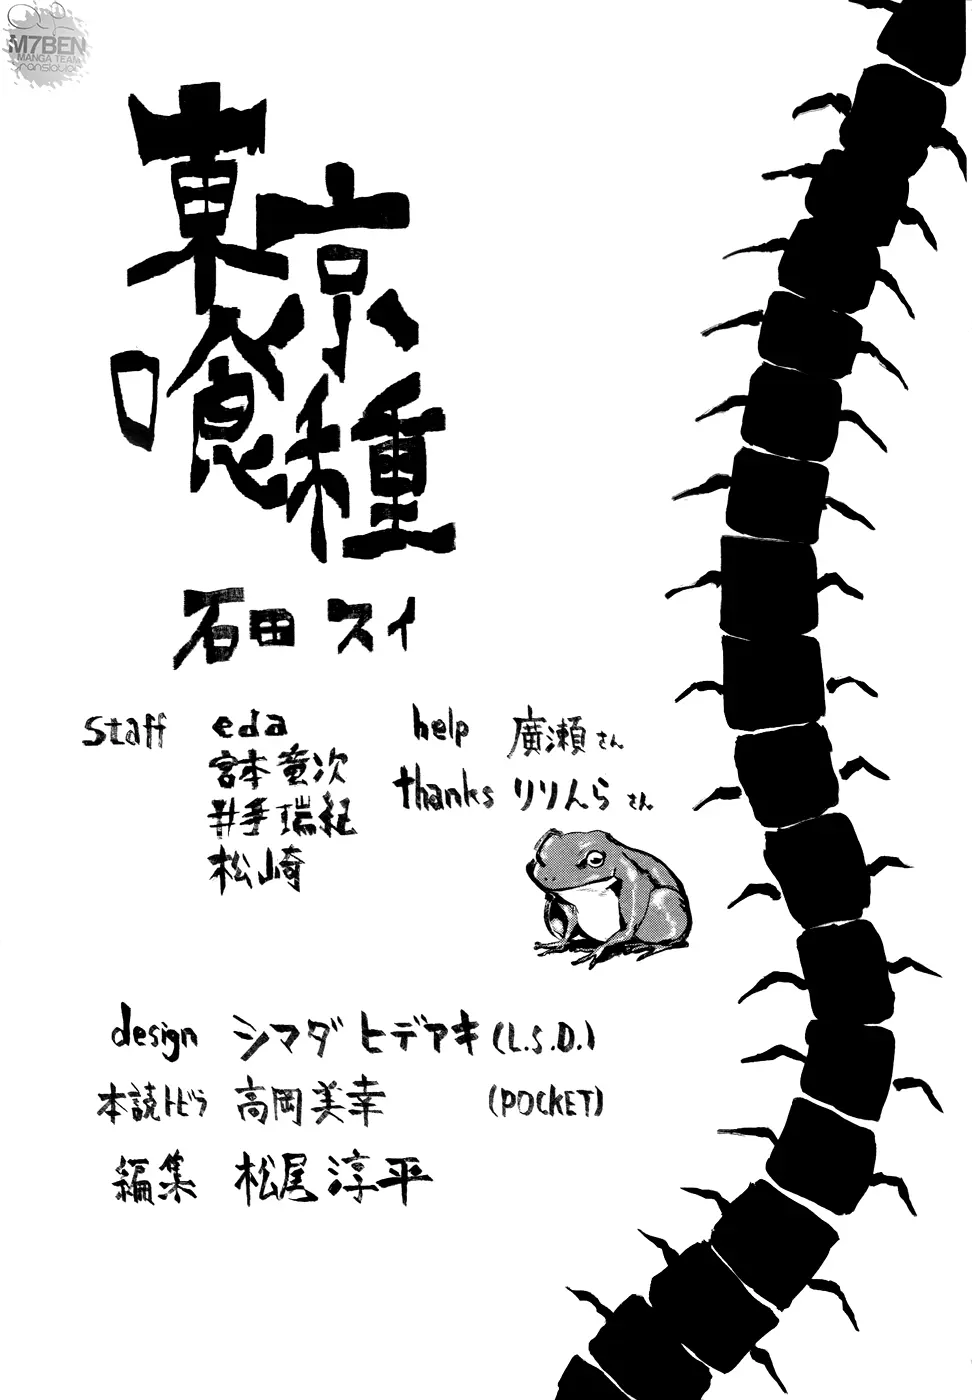 M7BEN
MANGA TEAM
Translation
東京
喰種
石田 スイ
staff eda
宮本竜次
井手瑞紀
松崎
help 廣瀬さん
thanks りりんらさん
design シマダ ヒデアキ (L.S.D.)
本読トビラ 高岡美幸 (POCKET)
編集 松尾淳平